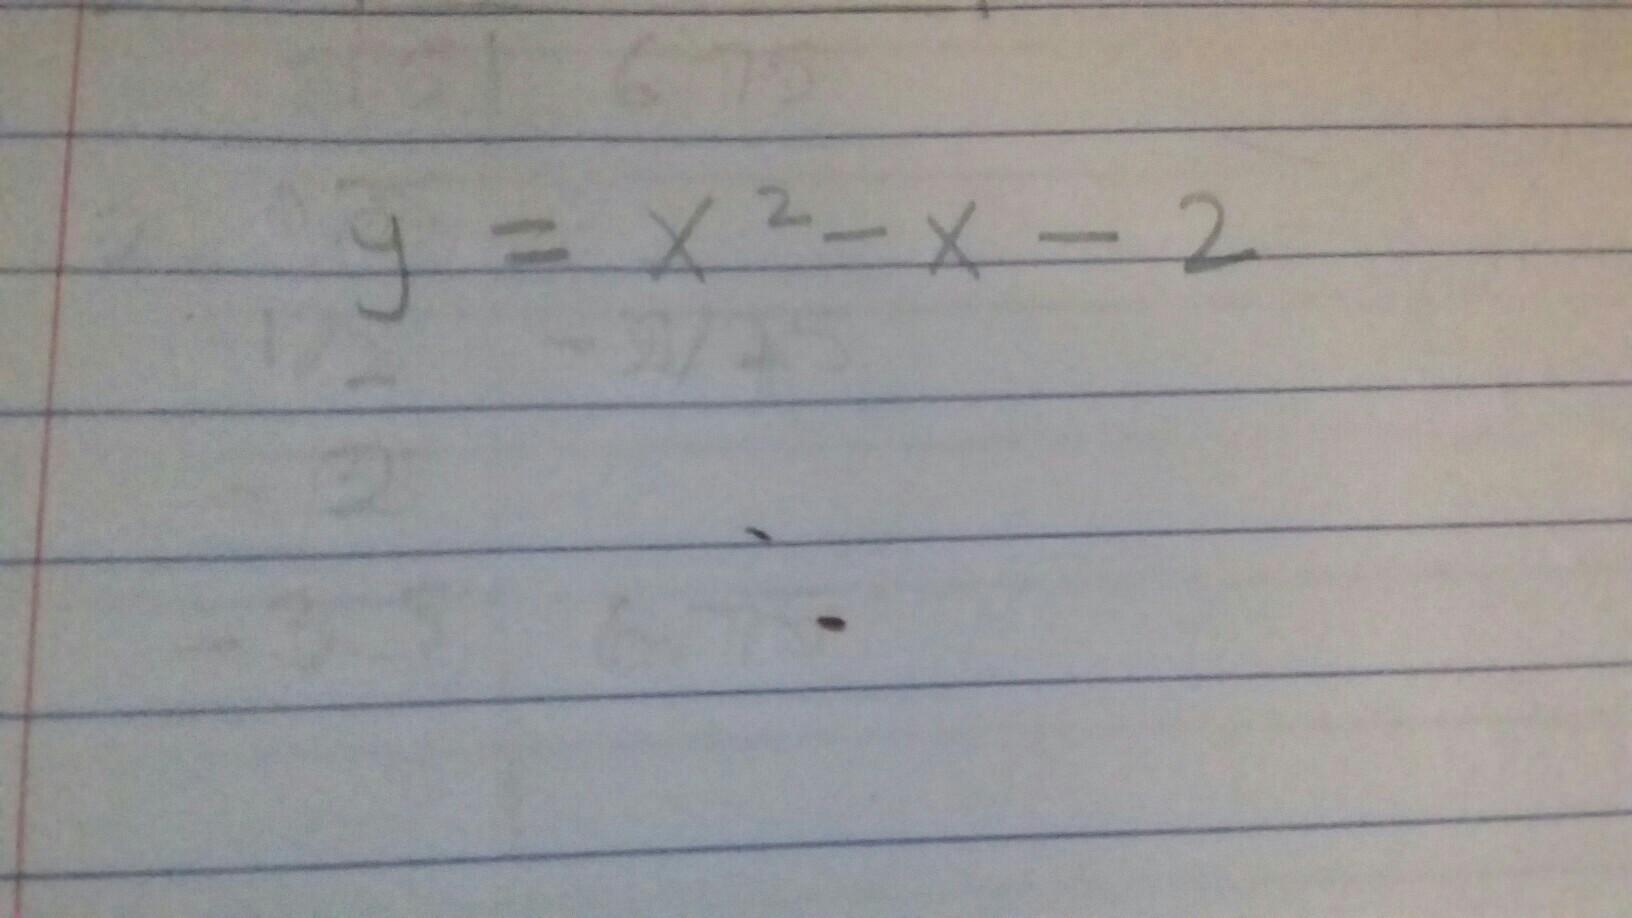 y = x² - x - 2